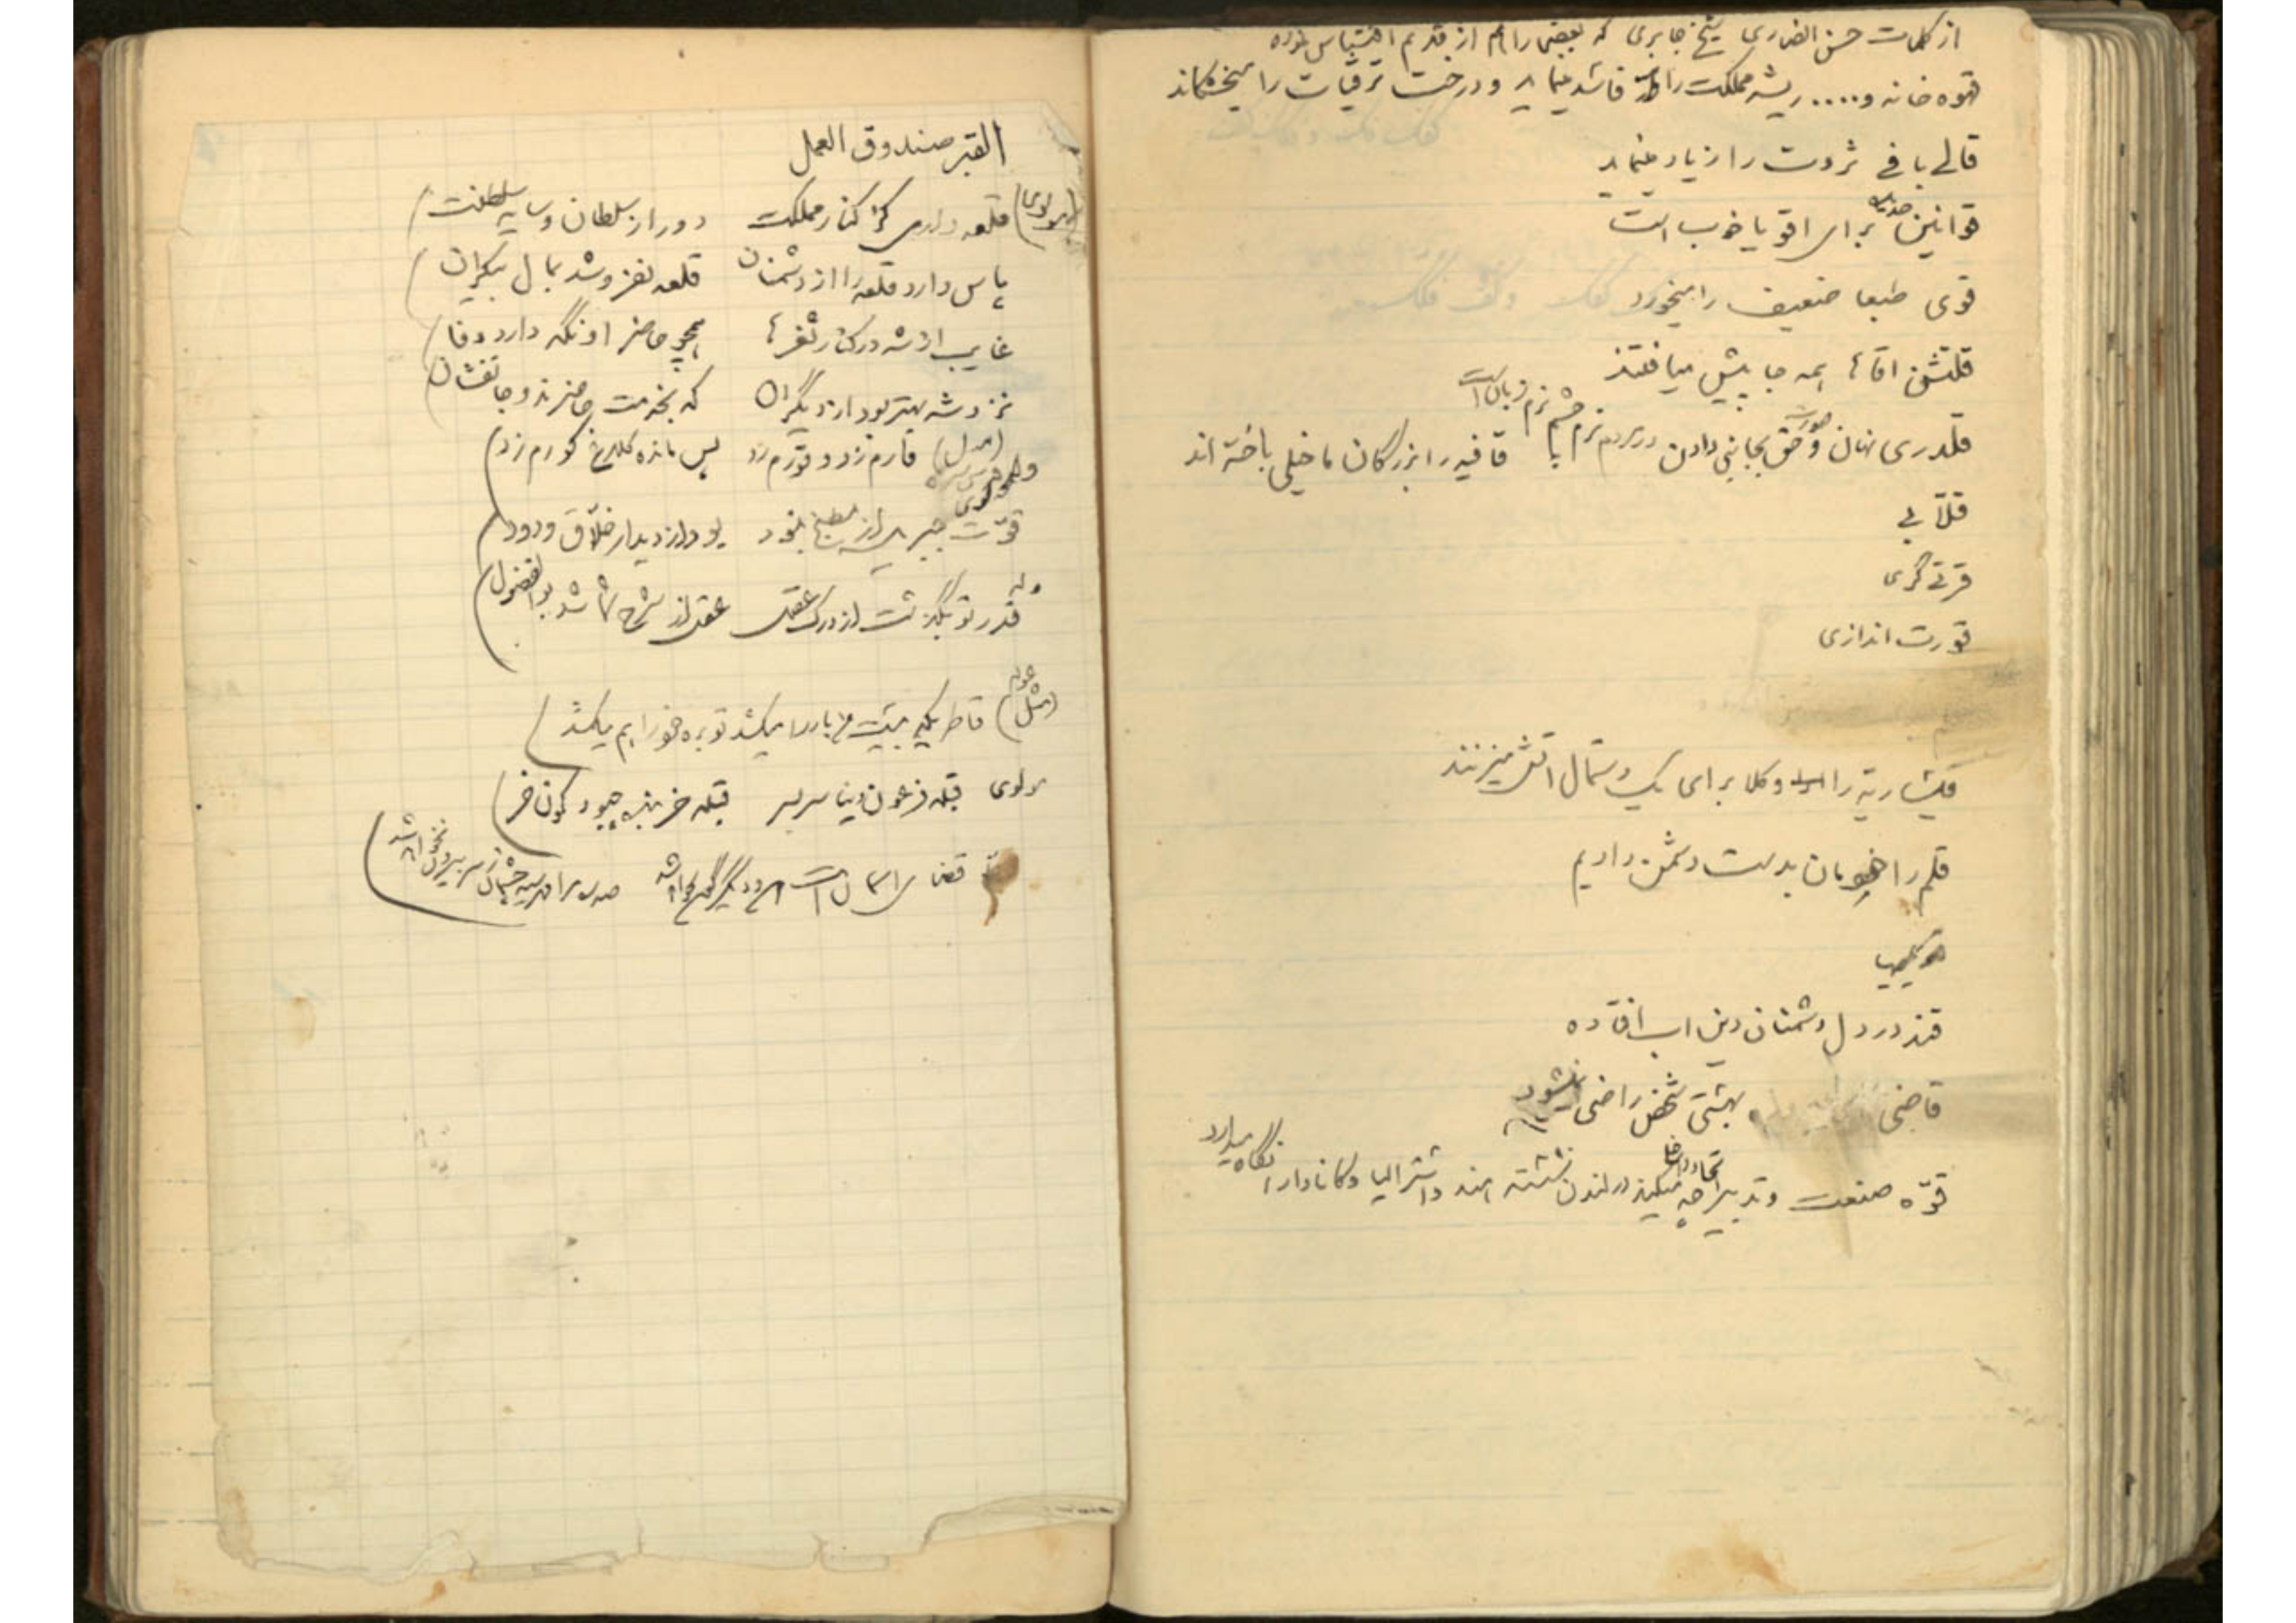 از کلمات حسن انصاری شیخ جابری که بعضی را هم از قدیم اقتباس نموده
قهوه خانه و..... ریشه مملکت را فاسد مینماید و درخت ترقیات را میخشکاند
قالی بافی ثروت را زیاد مینماید
قوانین جدیده برای اقویا خوب است
قوی طبعا ضعیف را میخورد
قلتشن اقاها همه جا پیش میافتند
قلدری نهان و حق بجانبی دادن در مردم نرم نرم زبان است
قافیه را بزرگان ما خیلی باخته اند
قلّابی
قرتی گری
قورت اندازی
قیصریه را وکلا برای یک دستمال اتش میزنند
قلم را خودمان بدست دشمن دادیم
قند در دل دشمنان دین اب افتاده
قاضی بهشتی شخص راضی نمیشود
قوّه صنعت و تدبیر و اتحاد چه میکند در لندن نشسته هند و استرالیا و کانادا را نگاه میدارد
القبر صندوق العمل
(مولوی) قلعه داری کز کنار مملکت دور از سلطان و سایه سلطنت
پاس دارد قلعه را از دشمنان قلعه نفروشد بمال بیکران
غایب از شه در کنار ثغرها همچو حاضر او نگه دارد وفا
نزد شه بهتر بود از دیگران که بخدمت حاضرند و جانفشان
(مثل) قارم زد و قورم زد پس مانده کلاغ کورم زد
مولوی قوّت جبریل از مطبخ نبود بود از دیدار خلّاق ودود
وله قدر تو بگذشت از درک عقل عقل از شرح شما شد بوالفضول
(مثل عوام) قاطریکه پیش اهنگ بار را میکشد توبره خود را هم میکشد
مولوی قبله فرعون دنیا سر بسر قبله خر بنده چبود کون خر
قضای اسمان است این و دیگرگون نخواهد شد مرا مهر سیه چشمان ز سر بیرون نخواهد شد